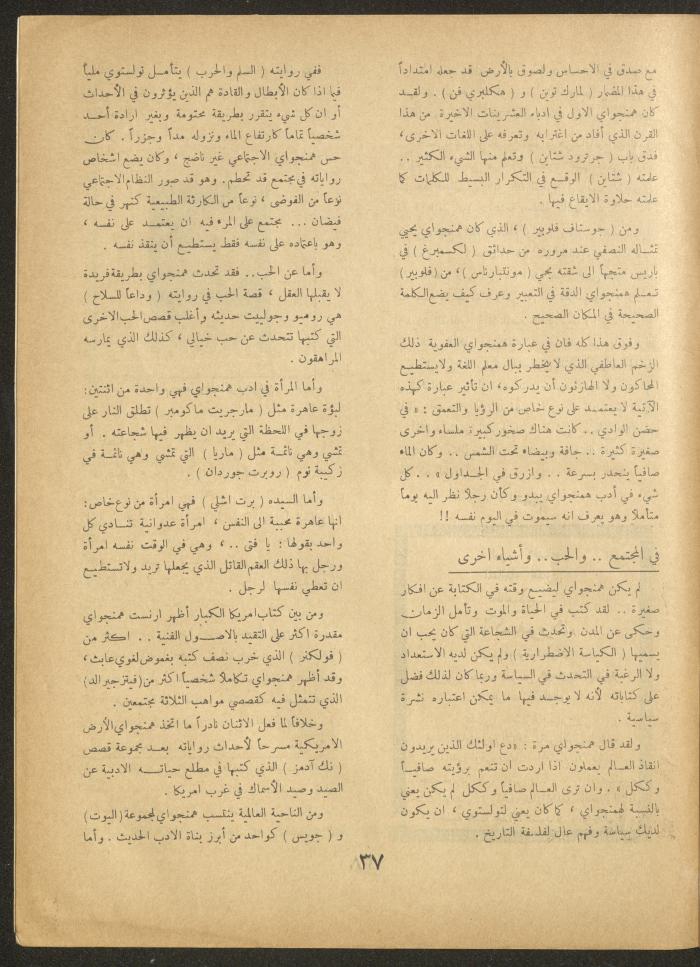 مع صدق في الاحساس ولصوق بالأرض قد جعله امتداداً
في هذا المضمار ( لمارك توين ) و ( هكلبري فن ) . ولقد
كان همنجواي الاول في ادباء العشرينات الاخيرة من هذا
القرن الذي أفاد من اغترابه وتعرفه على اللغات الاخرى،
فدق باب ( جرترود شتاين ) وتعلم منها الشيء الكثير ..
علمته ( شتاين ) الوقع في التكرار البسيط للكلمات كما
علمته حلاوة الايقاع فيها .
ومن ( جوستاف فلوبير ) ، الذي كان همنجواي يحيي
تمثاله النصفي عند مروره من حدائق ( لكسمبرغ ) في
باريس متجهاً الى شقته بحي ( مونتبارناس )، من ( فلوبير )
تعلم همنجواي الدقة في التعبير وعرف كيف يضع الكلمة
الصحيحة في المكان الصحيح .
وفوق هذا كله فان في عبارة همنجواي العفوية ذلك
الزخم العاطفي الذي لا يخطر ببال معلم اللغة ولا يستطيع
المحاكون ولا الهازئون أن يدركوه، ان تأثير عبارة كهذه
الآتية لا يعتمد على نوع خاص من الرؤيا والتعمق : « في
حضن الوادي .. كانت هناك صخور كبيرة ملساء واخرى
صغيرة كثيرة .. جافة وبيضاء تحت الشمس .. وكان الماء
صافياً ينحدر بسرعة .. وازرق في الجداول » .. كل
شيء في أدب همنجواي يبدو وكأن رجلا نظر اليه يوماً
متأملا وهو يعرف انه سيموت في اليوم نفسه !!
في المجتمع .. والحب .. وأشياء اخرى
لم يكن همنجواي ليضيع وقته في الكتابة عن افكار
صغيرة .. لقد كتب في الحياة والموت وتأمل الزمان
وحكى عن المدن وتحدث في الشجاعة التي كان يحب ان
يسميها ( الكياسة الاضطرارية ) ولم يكن لديه الاستعداد
ولا الرغبة في التحدث في السياسة وربما كان لذلك فضل
على كتاباته لأنه لا يوجد فيها ما يمكن اعتباره نشرة
سياسية .
ولقد قال همنجواي مرة : « دع اولئك الذين يريدون
انقاذ العالم يعملون اذا اردت ان تنعم برؤيته صافياً
وككل » . وان ترى العالم صافياً وككل لم يكن يعني
بالنسبة لهمنجواي ، كما كان يعني لتولستوي ، ان يكون
لديك سياسة وفهم عال لفلسفة التاريخ .
ففي روايته ( السلم والحرب ) يتأمل تولستوي ملياً
فيما اذا كان الأبطال والقادة هم الذين يؤثرون في الأحداث
أو ان كل شيء يتقرر بطريقة محتومة وبغير ارادة أحد
شخصياً تماماً كارتفاع الماء ونزوله مداً وجزراً . كان
حس همنجواي الاجتماعي غير ناضج ، وكان يضع اشخاص
رواياته في مجتمع قد تحطم . وهو قد صور النظام الاجتماعي
نوعاً من الفوضى ، نوعاً من الكارثة الطبيعية كنهر في حالة
فيضان ... مجتمع على المرء فيه ان يعتمد على نفسه ،
وهو باعتماده على نفسه فقط يستطيع أن ينقذ نفسه .
وأما عن الحب .. فقد تحدث همنجواي بطريقة فريدة
لا يقبلها العقل ، قصة الحب في روايته ( وداعاً للسلاح )
هي روميو وجولييت حديثه وأغلب قصص الحب الاخرى
التي كتبها تتحدث عن حب خيالي ، كذلك الذي يمارسه
المراهقون .
وأما المرأة في ادب همنجواي فهي واحدة من اثنتين:
لبؤة عاهرة مثل ( مارجريت ماكومبر ) تطلق النار على
زوجها في اللحظة التي يريد ان يظهر فيها شجاعته . أو
تمشي وهي نائمة مثل ( ماريا ) التي تمشي وهي نائمة في
زكيبة نوم ( روبرت جوردان ) .
وأما السيده ( برت اشلي ) فهي امرأة من نوع خاص:
انها عاهرة محببة الى النفس ، امرأة عدوانية تنادي كل
واحد بقولها : يا فتى .. ، وهي في الوقت نفسه امرأة
ورجل بها ذلك العقم القاتل الذي يجعلها تريد ولا تستطيع
ان تعطي نفسها لرجل .
ومن بين كتاب امريكا الكبار أظهر ارنست همنجواي
مقدرة اكثر على التقيد بالاصول الفنية .. اكثر من
( فولكنر ) الذي خرب نصف كتبه بغموض لغوي عابث،
وقد أظهر همنجواي تكاملا شخصياً اكثر من (فيتزجيرالد)
الذي تتمثل فيه كقصصي مواهب الثلاثة مجتمعين .
وخلافاً لما فعل الاثنان نادراً ما اتخذ همنجواي الأرض
الامريكية مسرحاً لأحداث رواياته بعد مجموعة قصص
( نك آدمز ) الذي كتبها في مطلع حياته الادبية عن
الصيد وصيد الأسماك في غرب امريكا .
ومن الناحية العالمية ينتسب همنجواي لمجموعة (اليوت)
و ( جويس ) كواحد من أبرز بناة الادب الحديث . وأما
٣٧